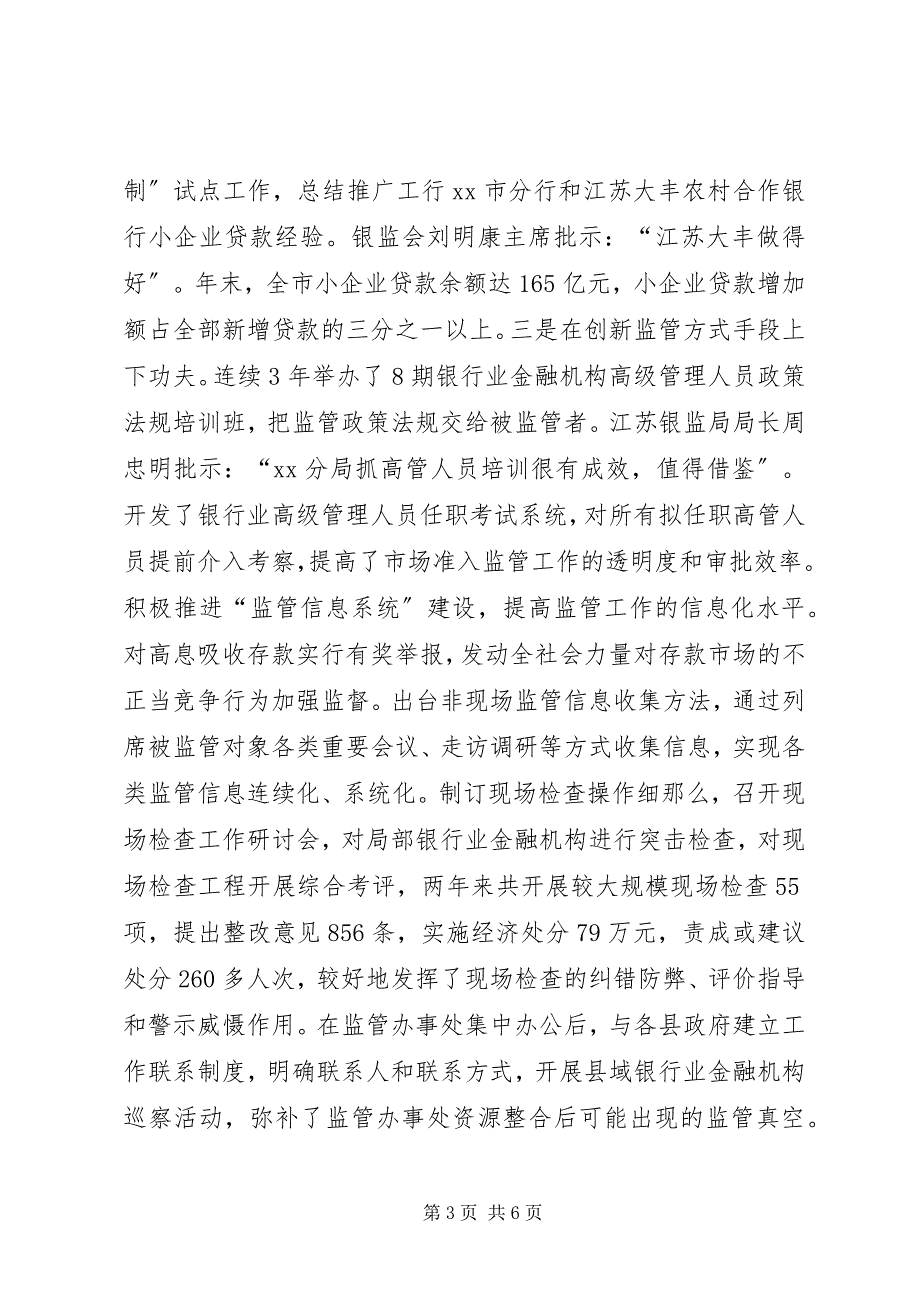 制〞试点工作，总结推广工行 xx 市分行和江苏大丰农村合作银
行小企业贷款经验。银监会刘明康主席批示：“江苏大丰做得
好〞。年末，全市小企业贷款余额达 165 亿元，小企业贷款增加
额占全部新增贷款的三分之一以上。三是在创新监管方式手段上
下功夫。连续 3 年举办了 8 期银行业金融机构高级管理人员政策
法规培训班，把监管政策法规交给被监管者。江苏银监局局长周
忠明批示：“xx 分局抓高管人员培训很有成效，值得借鉴〞。
开发了银行业高级管理人员任职考试系统，对所有拟任职高管人
员提前介入考察，提高了市场准入监管工作的透明度和审批效率。
积极推进“监管信息系统〞建设，提高监管工作的信息化水平。
对高息吸收存款实行有奖举报，发动全社会力量对存款市场的不
正当竞争行为加强监督。出台非现场监管信息收集方法，通过列
席被监管对象各类重要会议、走访调研等方式收集信息，实现各
类监管信息连续化、系统化。制订现场检查操作细那么，召开现
场检查工作研讨会，对局部银行业金融机构进行突击检查，对现
场检查工程开展综合考评，两年来共开展较大规模现场检查 55
项，提出整改意见 856 条，实施经济处分 79 万元，责成或建议
处分 260 多人次，较好地发挥了现场检查的纠错防弊、评价指导
和警示威慑作用。在监管办事处集中办公后，与各县政府建立工
作联系制度，明确联系人和联系方式，开展县域银行业金融机构
巡察活动，弥补了监管办事处资源整合后可能出现的监管真空。
第 3 页 共 6 页